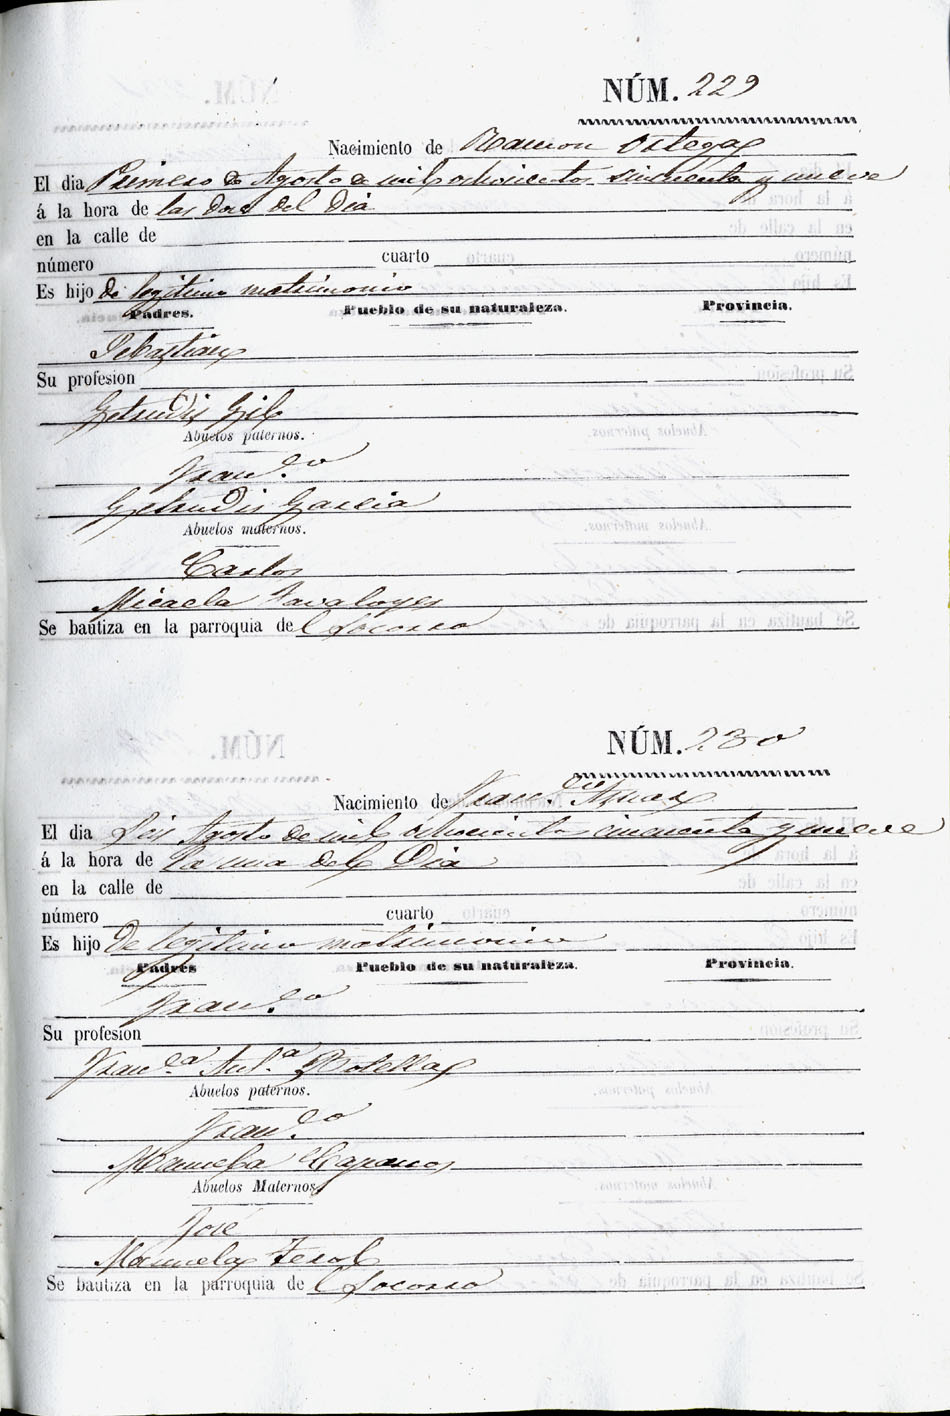 NÚM. 229
Nacimiento de Ramon Ortega
El dia Primero de Agosto de mil ochosientos sincuenta y nueve
á la hora de las doce del Dia
en la calle de
número cuarto
Es hijo de legitimo matrimonio
Padres. Pueblo de su naturaleza. Provincia.
Sebastian
Su profesion
Getrudis Gil
Abuelos paternos.
Franco
Getrudis Garcia
Abuelos maternos.
Carlos
Micaela Tavaloyes
Se bautiza en la parroquia de Socorro
NÚM. 230
Nacimiento de Franco Asnar
El dia Agosto de mil ochocientos cincuenta y nueve
á la hora de la una del Dia
en la calle de
número cuarto
Es hijo De legitimo matrimonio
Padres Pueblo de su naturaleza. Provincia.
Franco
Su profesion
Franca Anta Botella
Abuelos paternos.
Franco
Manuela
Abuelos Maternos
José
Manuela Terol
Se bautiza en la parroquia de Socorro